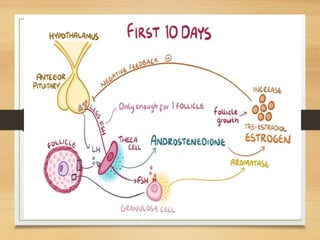 FIRST 10 DAYS
HYPOTHALAMUS
NEGATIVE FEEDBACK
ANTERIOR
PITUITARY
INCREASE
Only enough for 1 FOLLICLE
follicle
growth
17β-ESTRADIOL
ESTROGEN
FSH
LH
FOLLICLE
THECA
CELL
ANDROSTENEDIONE
AROMATASE
FSH
GRANULOSA CELL